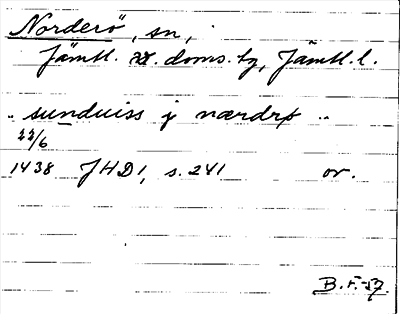 Norderö, sn,
Jämtl. v. doms. tg, Jämtl. l.
"sunduiss j nærdrø"
22/6
1438 JHD 1, s. 241 or.
B.F.-57.